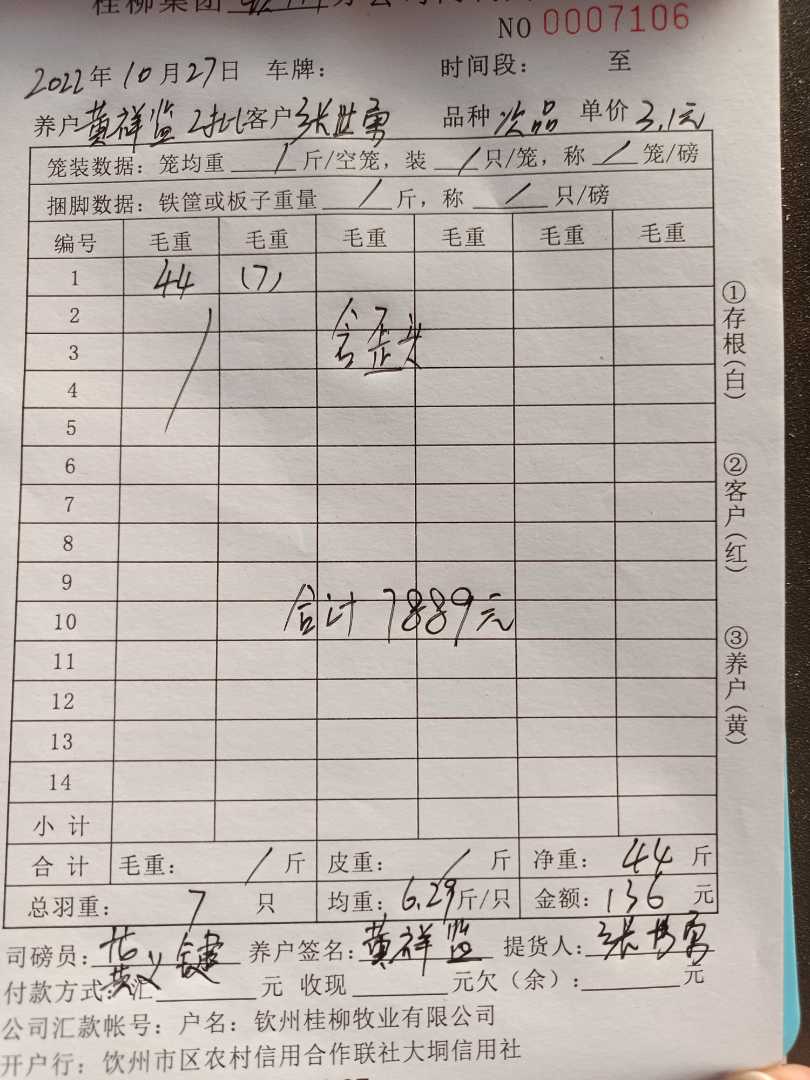 桂柳集团 分公司
NO 0007106
2022年10月27日 车牌: 时间段: 至
养户 黄祥监 2批 客户 张世勇 品种 次品 单价 3.1元
笼装数据: 笼均重 / 斤/空笼, 装 / 只/笼, 称 / 笼/磅
捆脚数据: 铁筐或板子重量 / 斤, 称 / 只/磅
编号 毛重 毛重 毛重 毛重 毛重 毛重
1 44 (7)
2
3 含歪头
4
5
6
7
8
9
10 合计 7889元
11
12
13
14
小计
合计 毛重: / 斤 皮重: / 斤 净重: 44 斤
总羽重: 7 只 均重: 6.29斤/只 金额: 136 元
司磅员: 养户签名: 黄祥监 提货人:
付款方式: 汇 元 收现 元欠(余): 元
公司汇款帐号: 户名: 钦州桂柳牧业有限公司
开户行: 钦州市区农村信用合作联社大垌信用社
①存根(白)
②客户(红)
③养户(黄)